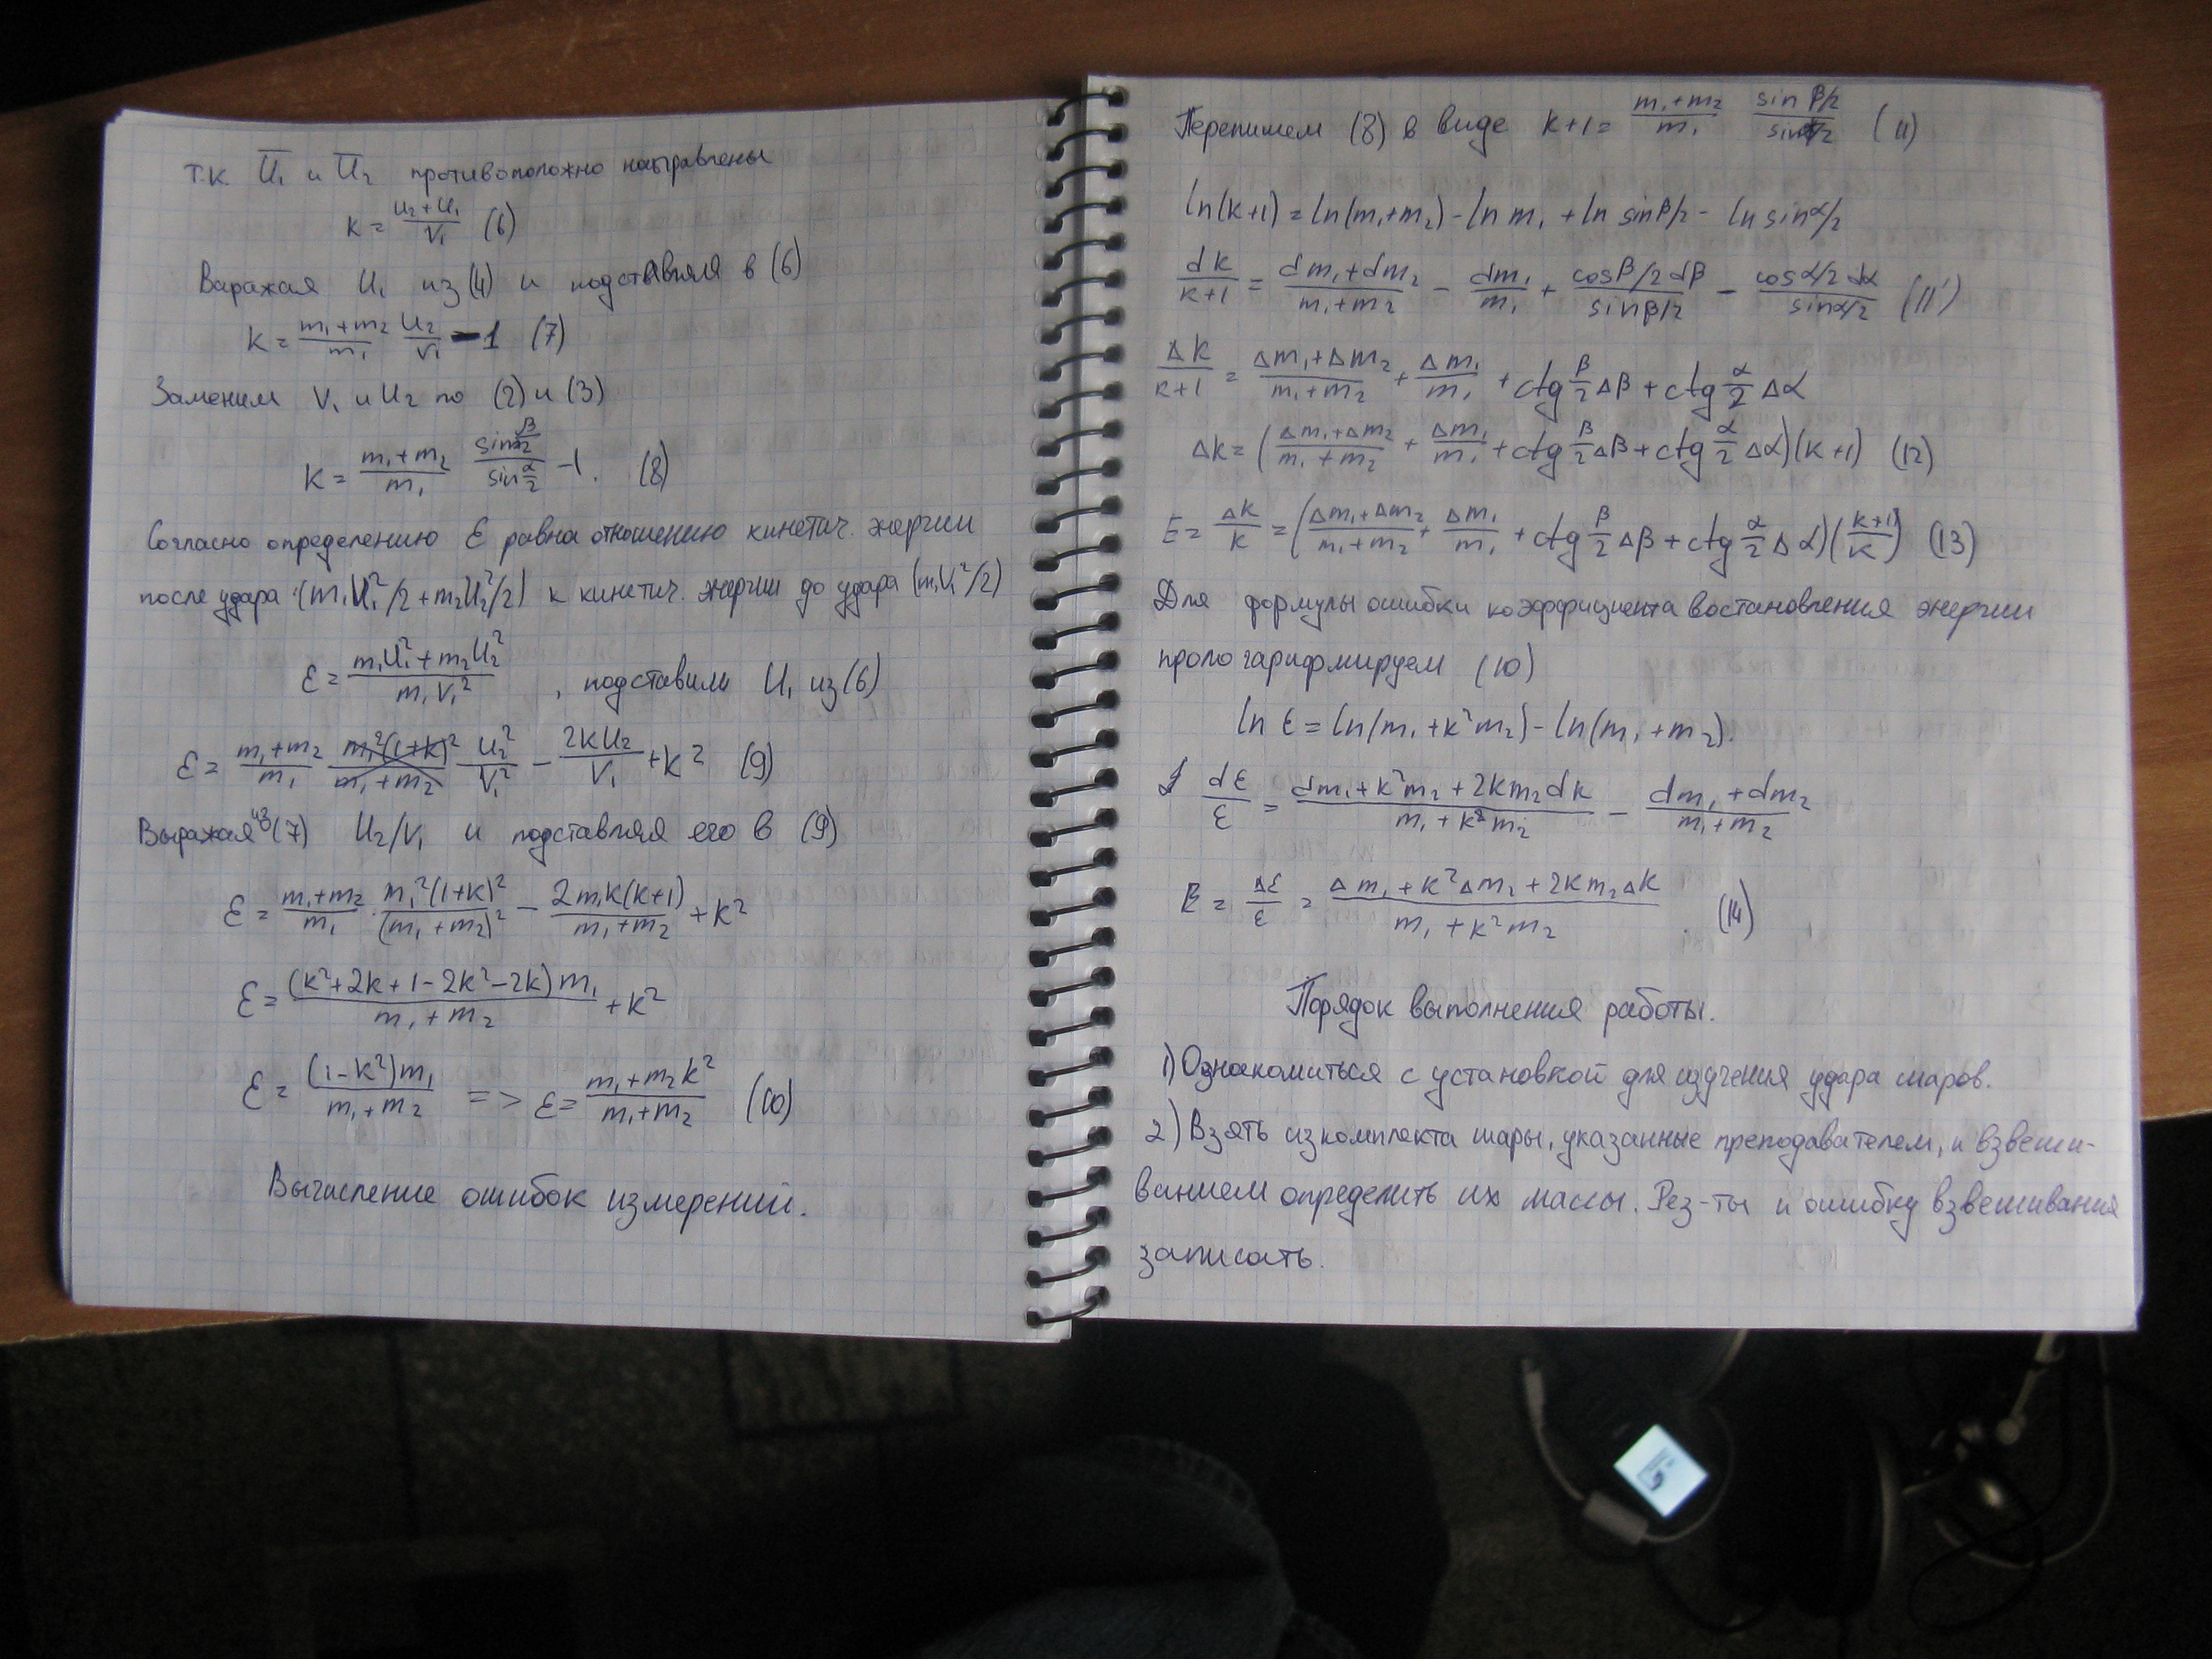 т.к. U̅₁ и U̅₂ противоположно направлены
k = (U₂+U₁)/V₁ (6)
Варажая U₁ из (4) и подставляя в (6)
k = (m₁+m₂)/m₁ U₂/V₁ - 1 (7)
Заменим V₁ и U₂ по (2) и (3)
k = (m₁+m₂)/m₁ (sin β/2)/(sin α/2) - 1. (8)
Согласно определению ε равна отношению кинетич. энергии
после удара (m₁U₁²/2 + m₂U₂²/2) к кинетич. энергии до удара (m₁V₁²/2)
ε = (m₁U₁² + m₂U₂²)/(m₁V₁²), подставим U₁ из (6)
ε = (m₁+m₂)/m₁ U₂²/V₁² - 2kU₂/V₁ + k² (9)
Выражая из (7) U₂/V₁ и подставляя его в (9)
ε = (m₁+m₂)/m₁ · m₁²(1+k)²/(m₁+m₂)² - 2m₁k(k+1)/(m₁+m₂) + k²
ε = (k²+2k+1-2k²-2k)m₁/(m₁+m₂) + k²
ε = (1-k²)m₁/(m₁+m₂) => ε = (m₁+m₂k²)/(m₁+m₂) (10)
Вычисление ошибок измерений.
Перепишем (8) в виде k+1 = (m₁+m₂)/m₁ (sin β/2)/(sin α/2) (11)
ln(k+1) = ln(m₁+m₂) - ln m₁ + ln sin β/2 - ln sin α/2
dk/(k+1) = (dm₁+dm₂)/(m₁+m₂) - dm₁/m₁ + (cos β/2 dβ)/(sin β/2) - (cos α/2 dα)/(sin α/2) (11')
Δk/(k+1) = (Δm₁+Δm₂)/(m₁+m₂) + Δm₁/m₁ + ctg β/2 Δβ + ctg α/2 Δα
Δk = ((Δm₁+Δm₂)/(m₁+m₂) + Δm₁/m₁ + ctg β/2 Δβ + ctg α/2 Δα)(k+1) (12)
E = Δk/k = ((Δm₁+Δm₂)/(m₁+m₂) + Δm₁/m₁ + ctg β/2 Δβ + ctg α/2 Δα)((k+1)/k) (13)
Для формулы ошибки коэффициента востановления энергии
прологарифмируем (10)
ln ε = ln(m₁+k²m₂) - ln(m₁+m₂).
dε/ε = (dm₁+k²m₂+2km₂dk)/(m₁+k²m₂) - (dm₁+dm₂)/(m₁+m₂)
E = Δε/ε = (Δm₁+k²Δm₂+2km₂Δk)/(m₁+k²m₂). (14)
Порядок выполнения работы.
1) Ознакомиться с установкой для изучения удара шаров.
2) Взять из комплекта шары, указанные преподавателем, и взвеши-
ванием определить их массы. Рез-ты и ошибку взвешивания
записать.